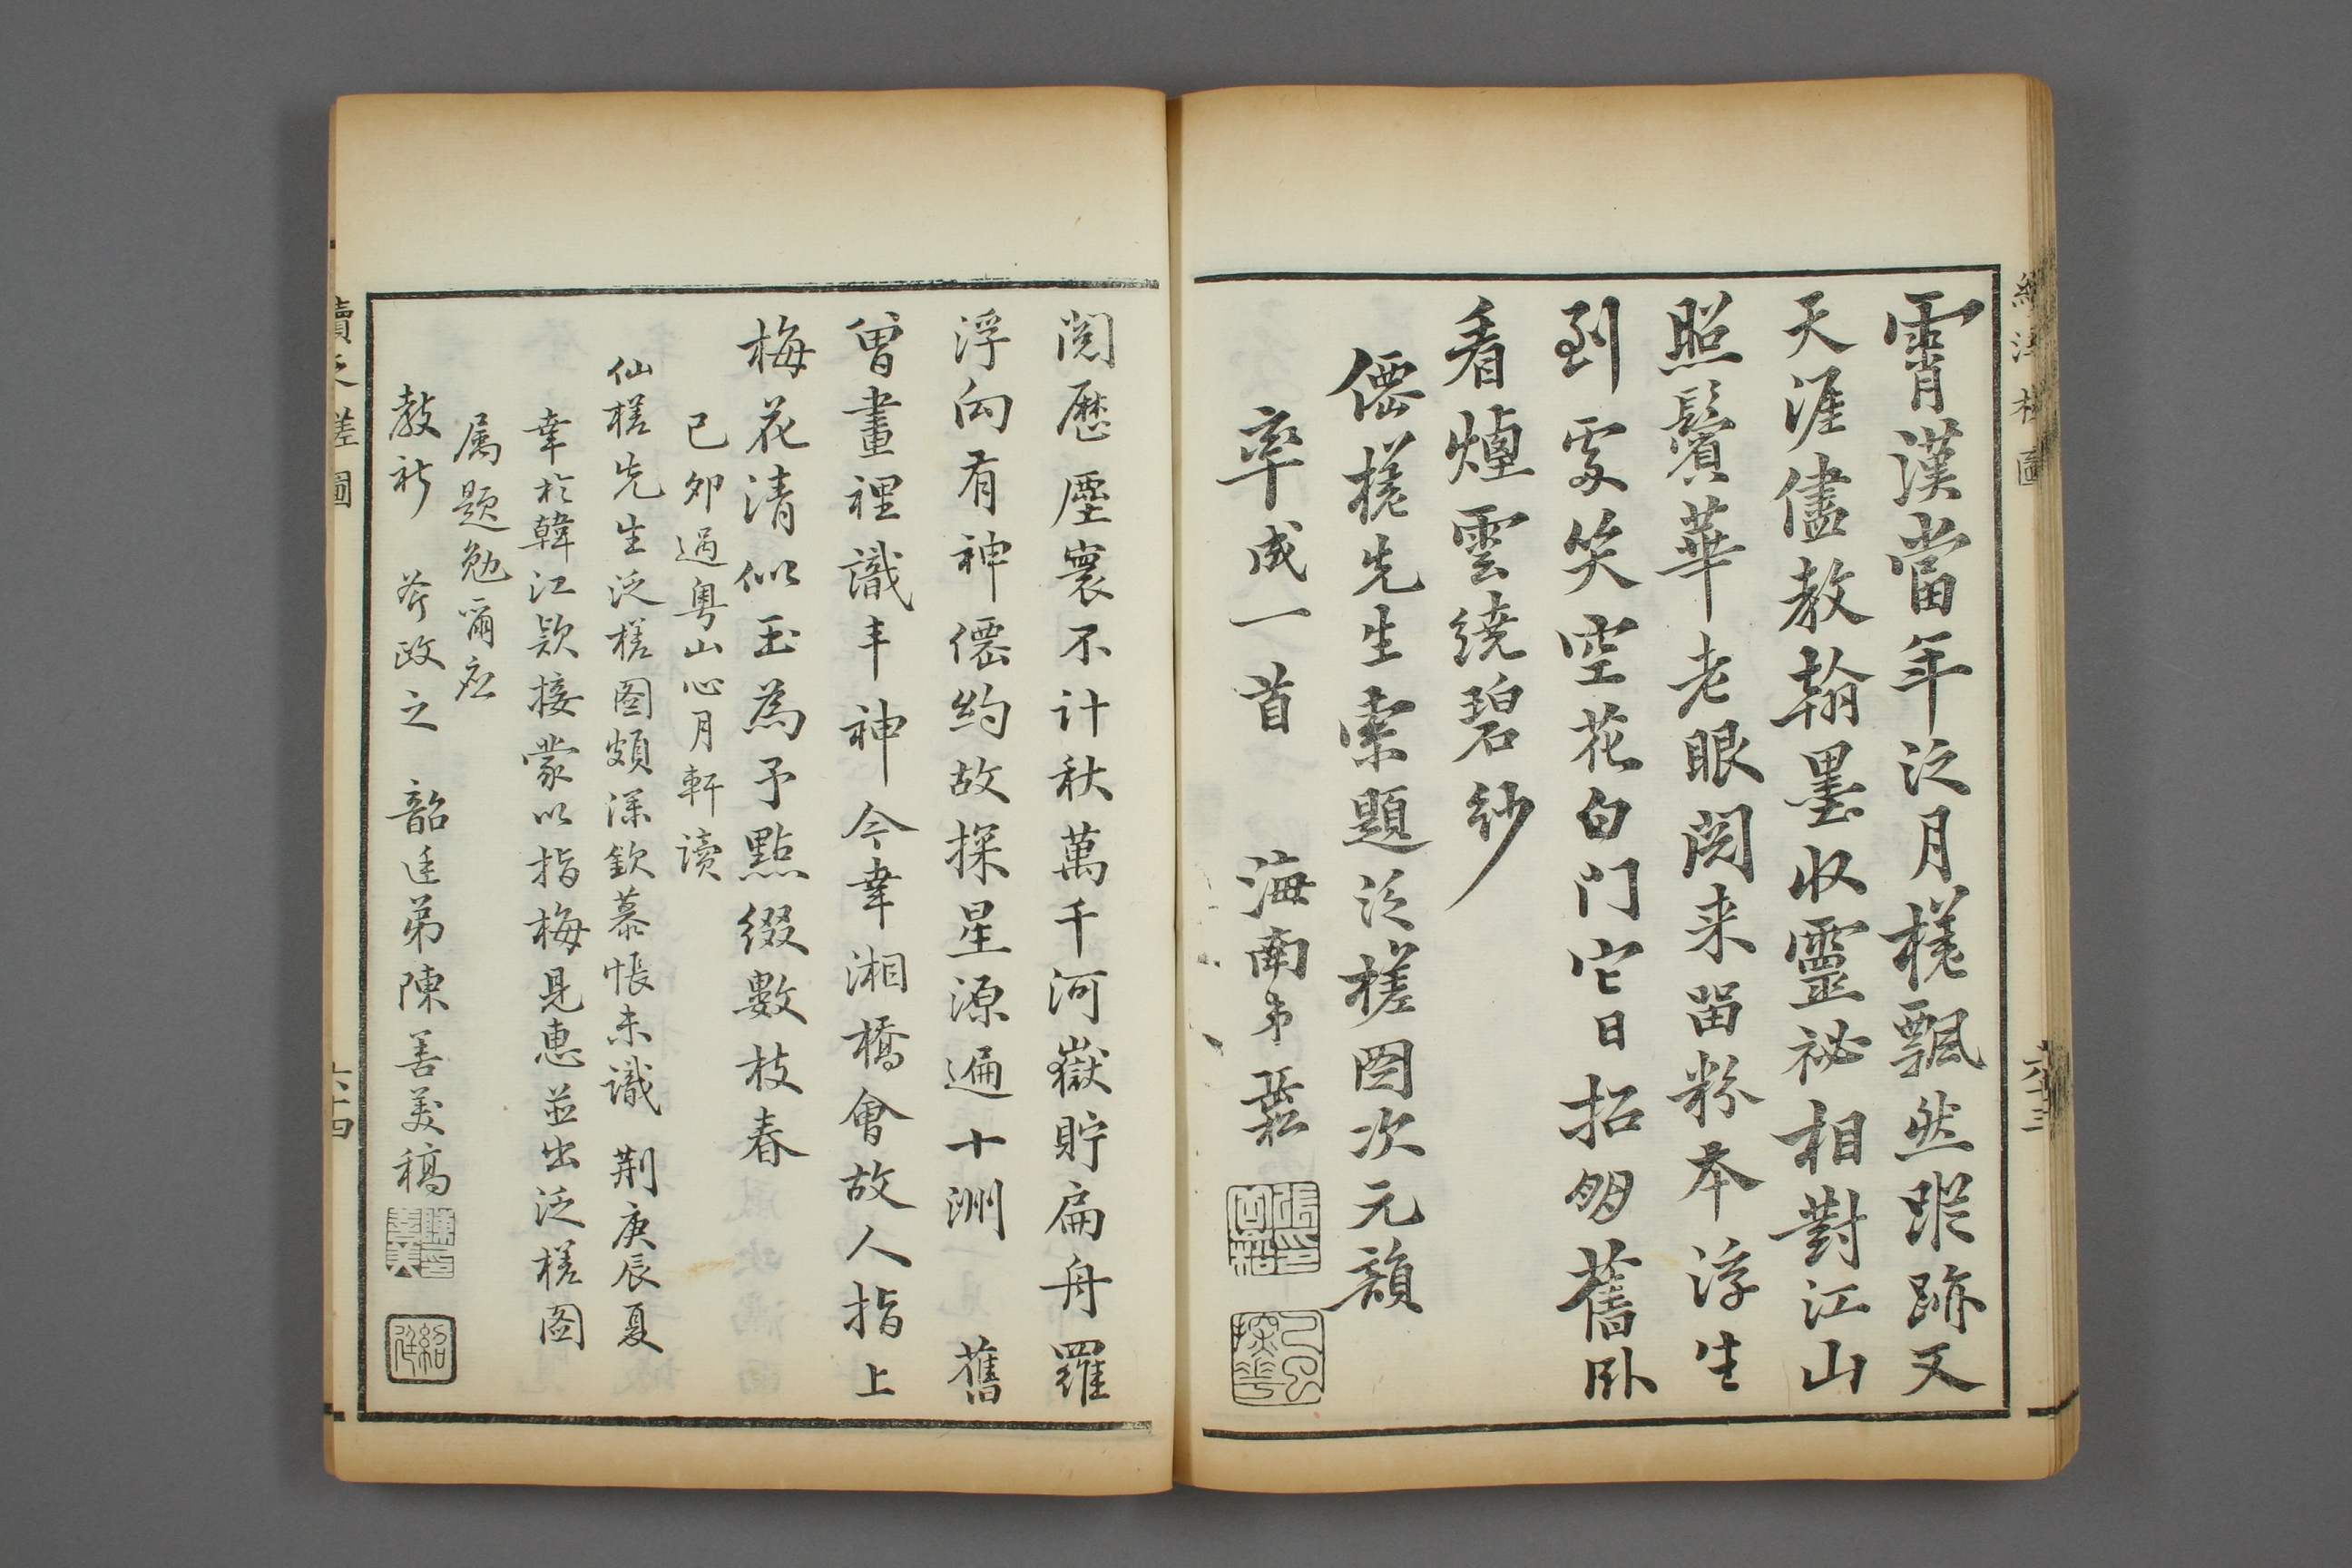 霄漢當年泛月槎飄然蹤跡又
天涯儘教翰墨收靈祕相對江山
照鬢華老眼閱来留粉本浮生
到處笑空花白门它日招朋舊卧
看煙雲繞碧紗
僊槎先生索題泛槎圖次元韻
率成一首 海南弟
六十三
閱歷塵寰不計秋萬千河嶽貯扁舟羅
浮向有神僊約故探星源遍十洲 舊
曾畫裡識丰神今幸湘橋會故人指上
梅花清似玉為予點綴數枝春
已卯過粵山心月軒讀
仙槎先生泛槎图頗深欽慕悵未識荆庚辰夏
幸於韓江欵接蒙以指梅見惠並出泛槎图
属題勉爾应
教祈 斧政之 韶廷弟陳善美稿
陳善美印
續泛槎圖
六十四